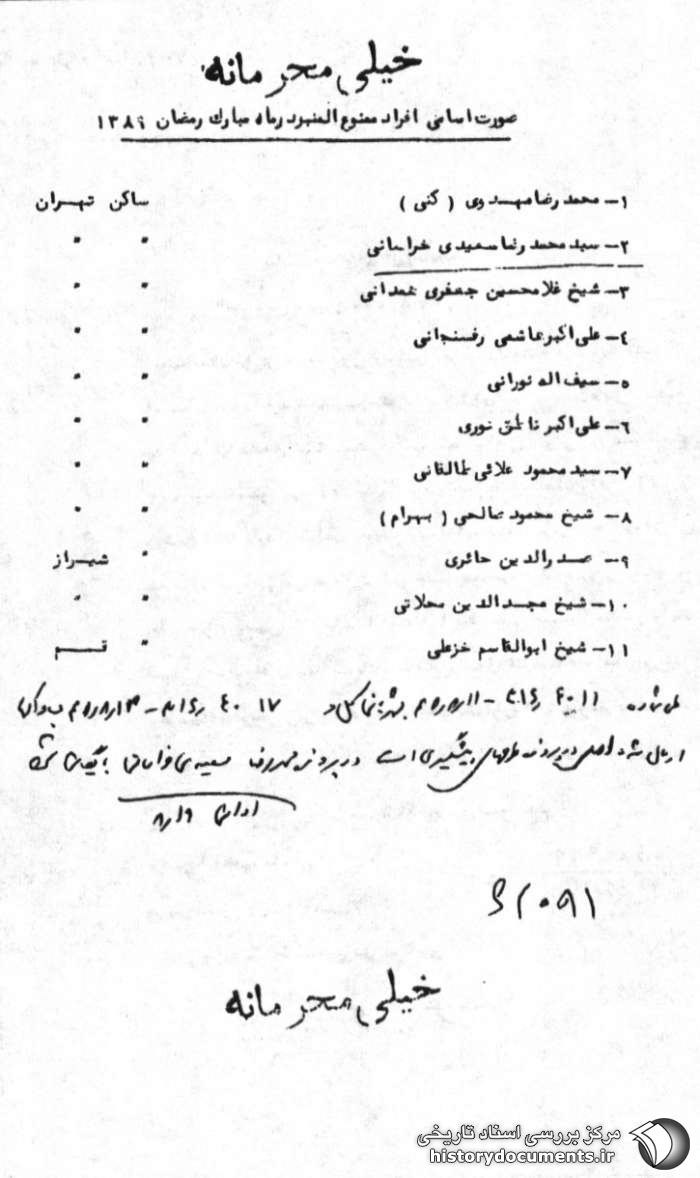 خیلی محرمانه
صورت اسامی افراد ممنوع المنبر در ماه مبارک رمضان ۱۳۸۹
۱- محمد رضا مهدوی ( کنی ) ساکن تهران
۲- سید محمد رضا سعیدی خراسانی " "
۳- شیخ غلامحسین جعفری همدانی " "
٤- علی اکبر هاشمی رفسنجانی " "
۵- سیف اله نورانی " "
٦- علی اکبر ناطق نوری " "
۷- سید محمود علائی طالقانی " "
۸- شیخ محمود صالحی ( بهرام ) " "
۹- صدرالدین حائری " شیراز
۱۰- شیخ مجدالدین محلاتی " "
۱۱- شیخ ابوالقاسم خزعلی " قم
ارسال شد اصلی در پرونده طرحهای پیشگیری است در پرونده محمدرضا سعیدی خراسانی بایگانی شود
خیلی محرمانه
مرکز بررسی اسناد تاریخی
historydocuments.ir